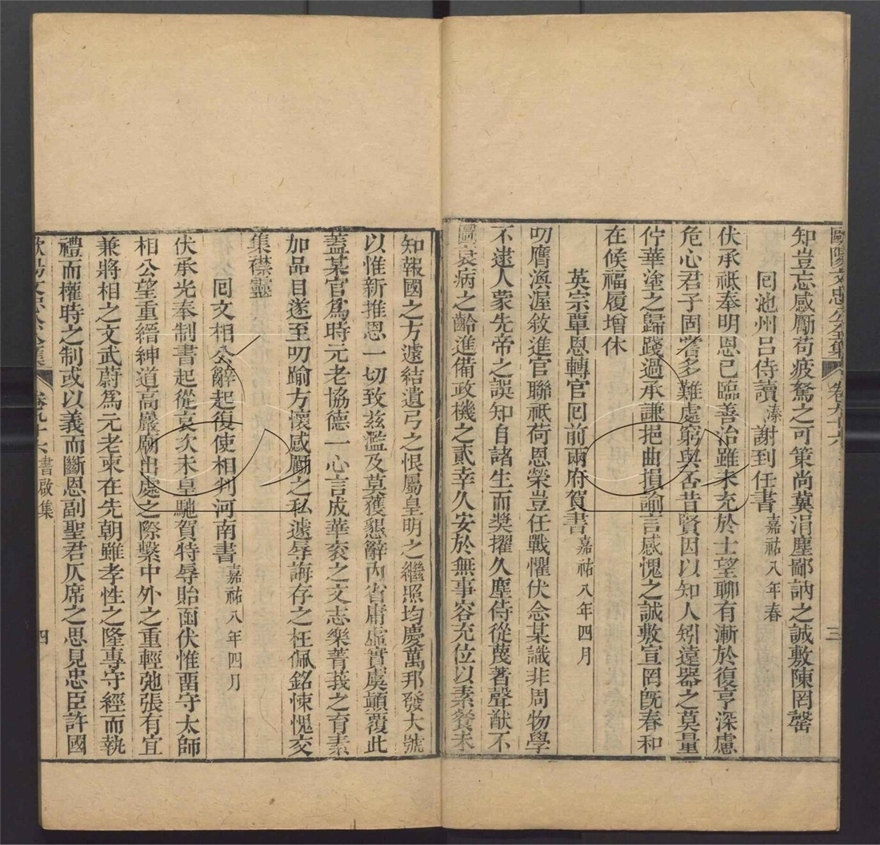 歐陽文忠公全集 卷九十六 三
知豈忘感勵苟疲駑之可策尚冀涓塵鄙訥之誠敷陳罔罄
回池州呂侍讀溱謝到任書嘉祐八年春
伏承祇奉明恩已臨善治雖未充於士望聊有漸於復亨深慮
危心君子固嘗多難處窮與否昔賢因以知人矧遠器之莫量
佇華塗之歸踐過承謙挹曲損諭言感愧之誠敷宣罔旣春和
在候福履增休
英宗覃恩轉官回前兩府賀書嘉祐八年四月
叨膺渙渥敘進官聯祇荷恩榮豈任戰懼伏念某識非周物學
不逮人蒙先帝之誤知自諸生而奬擢久塵侍從蔑著聲猷不
圖衰病之齡進備政機之貳幸久安於無事容充位以素餐未
知報國之方遽結遺弓之恨屬皇明之繼照均慶萬邦發大號
以惟新推恩一切致兹濫及莫獲懇辭內省庸虛實虞顚覆此
葢某官爲時元老協德一心言成華衮之文志樂菁莪之育素
加品目遂至叨踰方懷感勵之私遽辱誨存之枉佩銘悚愧交
集襟靈
回文相公辭起復使相判河南書嘉祐八年四月
伏承光奉制書起從哀次未皇馳賀特辱貽函伏惟畱守太師
相公望重縉紳道高巖廟出處之際繄中外之重輕弛張有宜
兼將相之文武蔚爲元老柬在先朝雖孝性之隆專守經而執
禮而權時之制或以義而斷恩副聖君仄席之思見忠臣許國
歐陽文忠公全集 卷九十六 書啟集 四